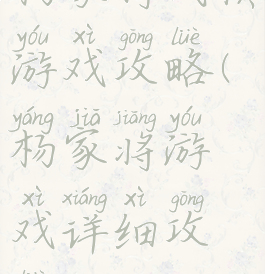 yóu xì gōng lüè
游戏攻略(
yáng jiā jiāng yóu
杨家将游
xì xiáng xì gōng
戏详细攻